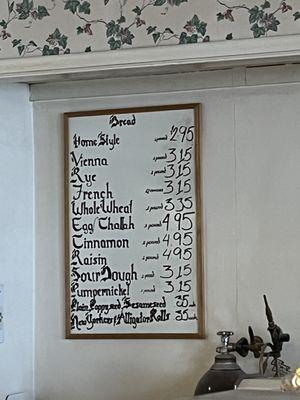 Bread
Home Style 1 pound $2.95
Vienna 1 pound 3.15
Rye 1 pound 3.15
French 3.15
Whole Wheat 1 pound 3.35
Egg/Challah 1 pound 4.95
Cinnamon 1 pound 4.95
Raisin 1 pound 4.95
Sour Dough 1 pound 3.15
Pumpernickel 1 pound 3.15
Plain, Poppyseed, Sesameseed .35
New Yorkers & Alligator Rolls .35